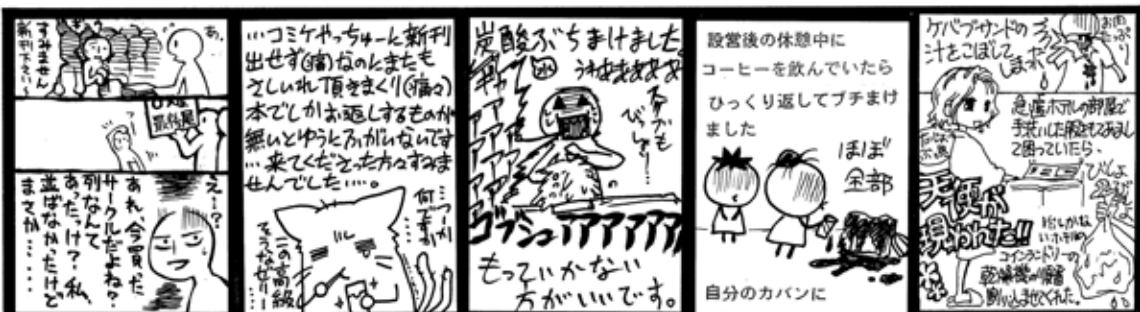 あ、
すみません
新刊下さい〜
最後尾
え…？
あれ、今買った
サークルだよね？
列なんて
あったっけ？私、
並ばなかったけど
まさか……
…コミケやっちゅーに新刊
出せず(痛)なのにまたも
さしいれ頂きまくり(痛々)
本でしかお返しするものが
無いとゆうにふがいないです
…来てくださった方々すみま
せんでした…。
何ですか
この高級
そうなゼリー…
炭酸ぶちまけました
うわああああ
ギャアアアア
スカートも
びしょ…
ゴブシュアアアアア
もっていかない
方がいいです。
設営後の休憩中に
コーヒーを飲んでいたら
ひっくり返してブチまけ
ました
ほぼ
全部
自分のカバンに
ケバブサンドの
汁をこぼして
しまい
お肉
たっぷり
急遽ホテルの部屋で
手洗いした服をもてあまし
て困っていたら、
びしょ
天使が
現われた!!
コインランドリーの
乾燥機の順番
割りこませてくれた。